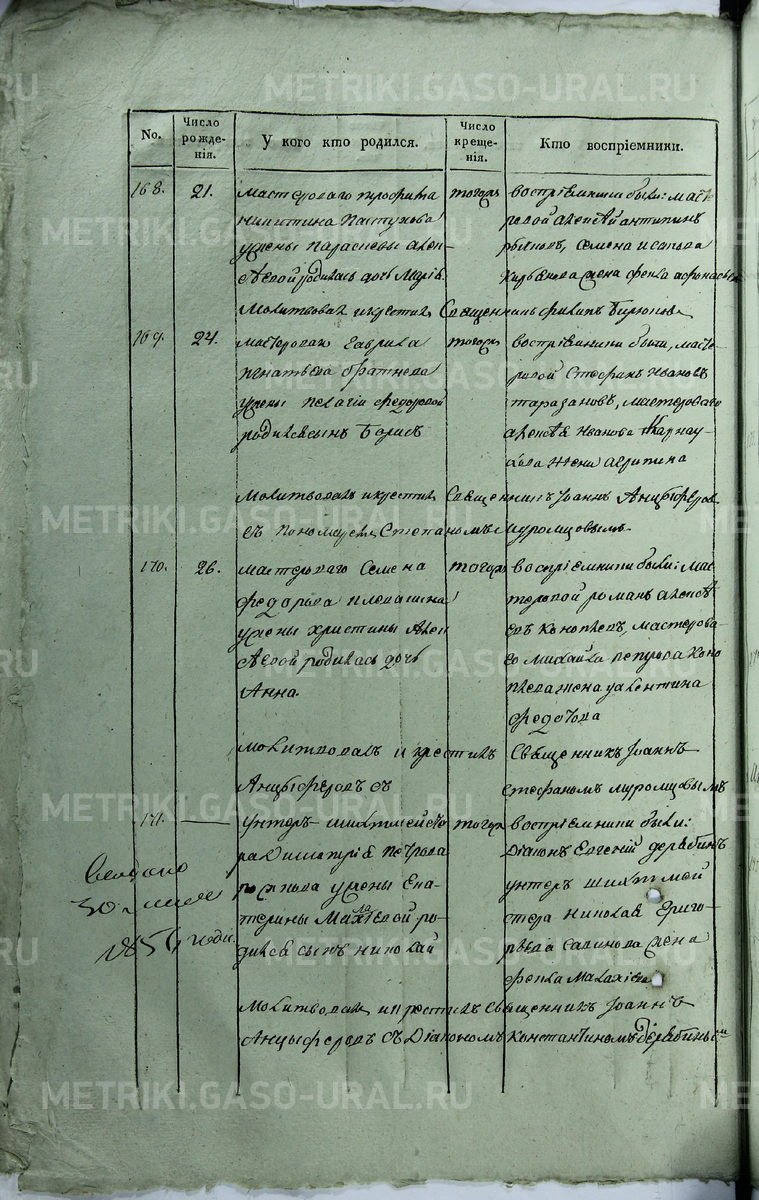 METRIKI.GASO-URAL.RU
No.
Число рожде-нія.
У кого кто родился.
Число креще-нія.
Кто воспріемники.
168. 21. мастероваго трофима
никитина Пастухова
у жены парасковьи алек-
ѣевой родилась дочь Марія.
тогожъ
воспріемники были: масте-
ровой алексѣй антипинъ
семена исакова
жена фекла афонасьева
Молитвовалъ и крестилъ Священникъ филипъ Бирюковъ
169. 24. мастероваго Гаврила
игнатьева братнева
у жены пелагіи федоровой
родился сынъ Борисъ
тогожъ
воспріемники были, масте-
ровой Стефанъ Ивановъ
таразановъ, мастероваго
алексѣя Иванова Карнау-
хова жена агрипина
Молитвовалъ и крестилъ Священникъ Іоаннъ Анцыферовъ
съ пономаремъ Степаномъ Муромцовымъ
170. 26. мастероваго Семена
федорова плевакина
у жены христины Алек
ѣевой родилась дочь
Анна.
тогожъ
воспріемники были: мас-
теровой романъ алексѣ-
евъ Коноплевъ, мастерова-
го михайла петрова Коно
плева жена валентина
федотова
Молитвовалъ и крестилъ Священникъ Іоаннъ
Анцыферовъ съ Стефаномъ муромцовымъ
171. — унтеръ-шихтмейсте-
ра Димитрія петрова
у жены Ека-
терины Малахіевой ро-
дился сынъ николай
тогожъ
воспріемники были:
Діаконъ Евгеній дерябинъ
унтеръ шихтмей
стера николая Григо-
рьева жена
фекла Малахіева
30 1854 года.
Молитвовалъ и крестилъ Священникъ Іоаннъ
Анцыферовъ съ Діакономъ Константиномъ Дерябинымъ